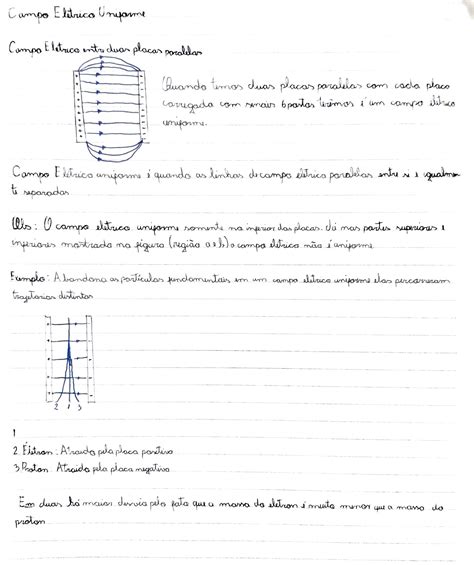 Campo Elétrico Uniforme
Campo Elétrico entre duas placas paralelas
Quando temos duas placas paralelas com cada placa
carregada com sinais opostos teremos é um campo elétrico
uniforme.
Campo Elétrico uniforme é quando as linhas de campo elétrico paralelas entre si e igualmen
te separadas
Obs: O campo elétrico uniforme somente no interior das placas. Já nas partes superiores e
inferiores mostrada na figura (região a e b) o campo elétrico não é uniforme.
Exemplo: Abandona as partículas fundamentais em um campo elétrico uniforme elas percorreram
trajetorias distintas
2 1 3
1
2 Elétron: Atraido pela placa positiva
3 Proton: Atraido pela placa negativa
Em duas há maior desvio pelo fato que a massa do eletron é muito menor que a massa do
próton